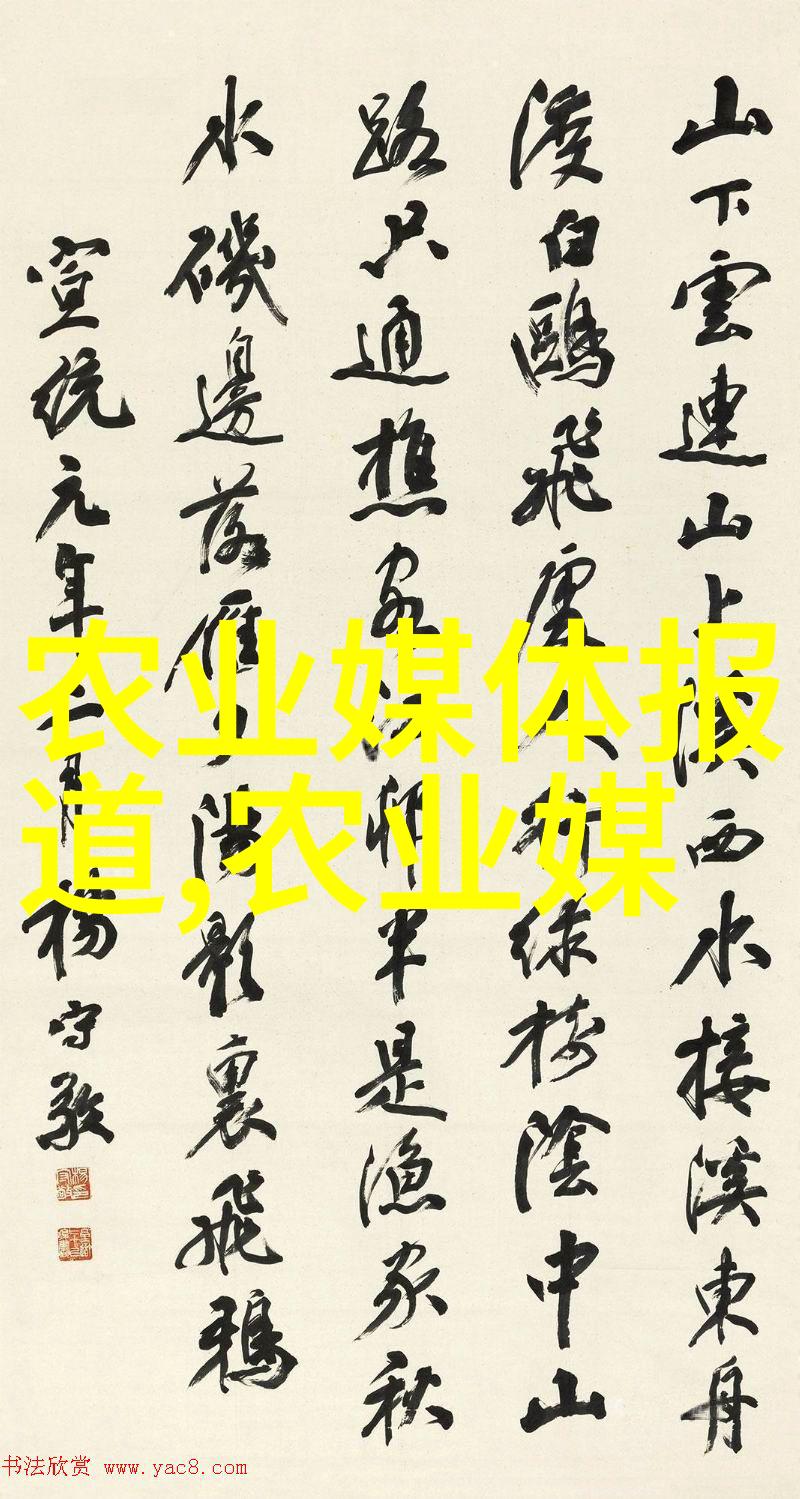 山下雲連山上溪西水接溪東舟
渡白鷗飛處人行綠樹陰中山
路只通樵客江邨半是漁家秋
水磯邊落雁夕陽影裏飛鴉
宣統元年月楊守敬
农业媒体报
道,农业媒
书法欣赏 www.yac8.com